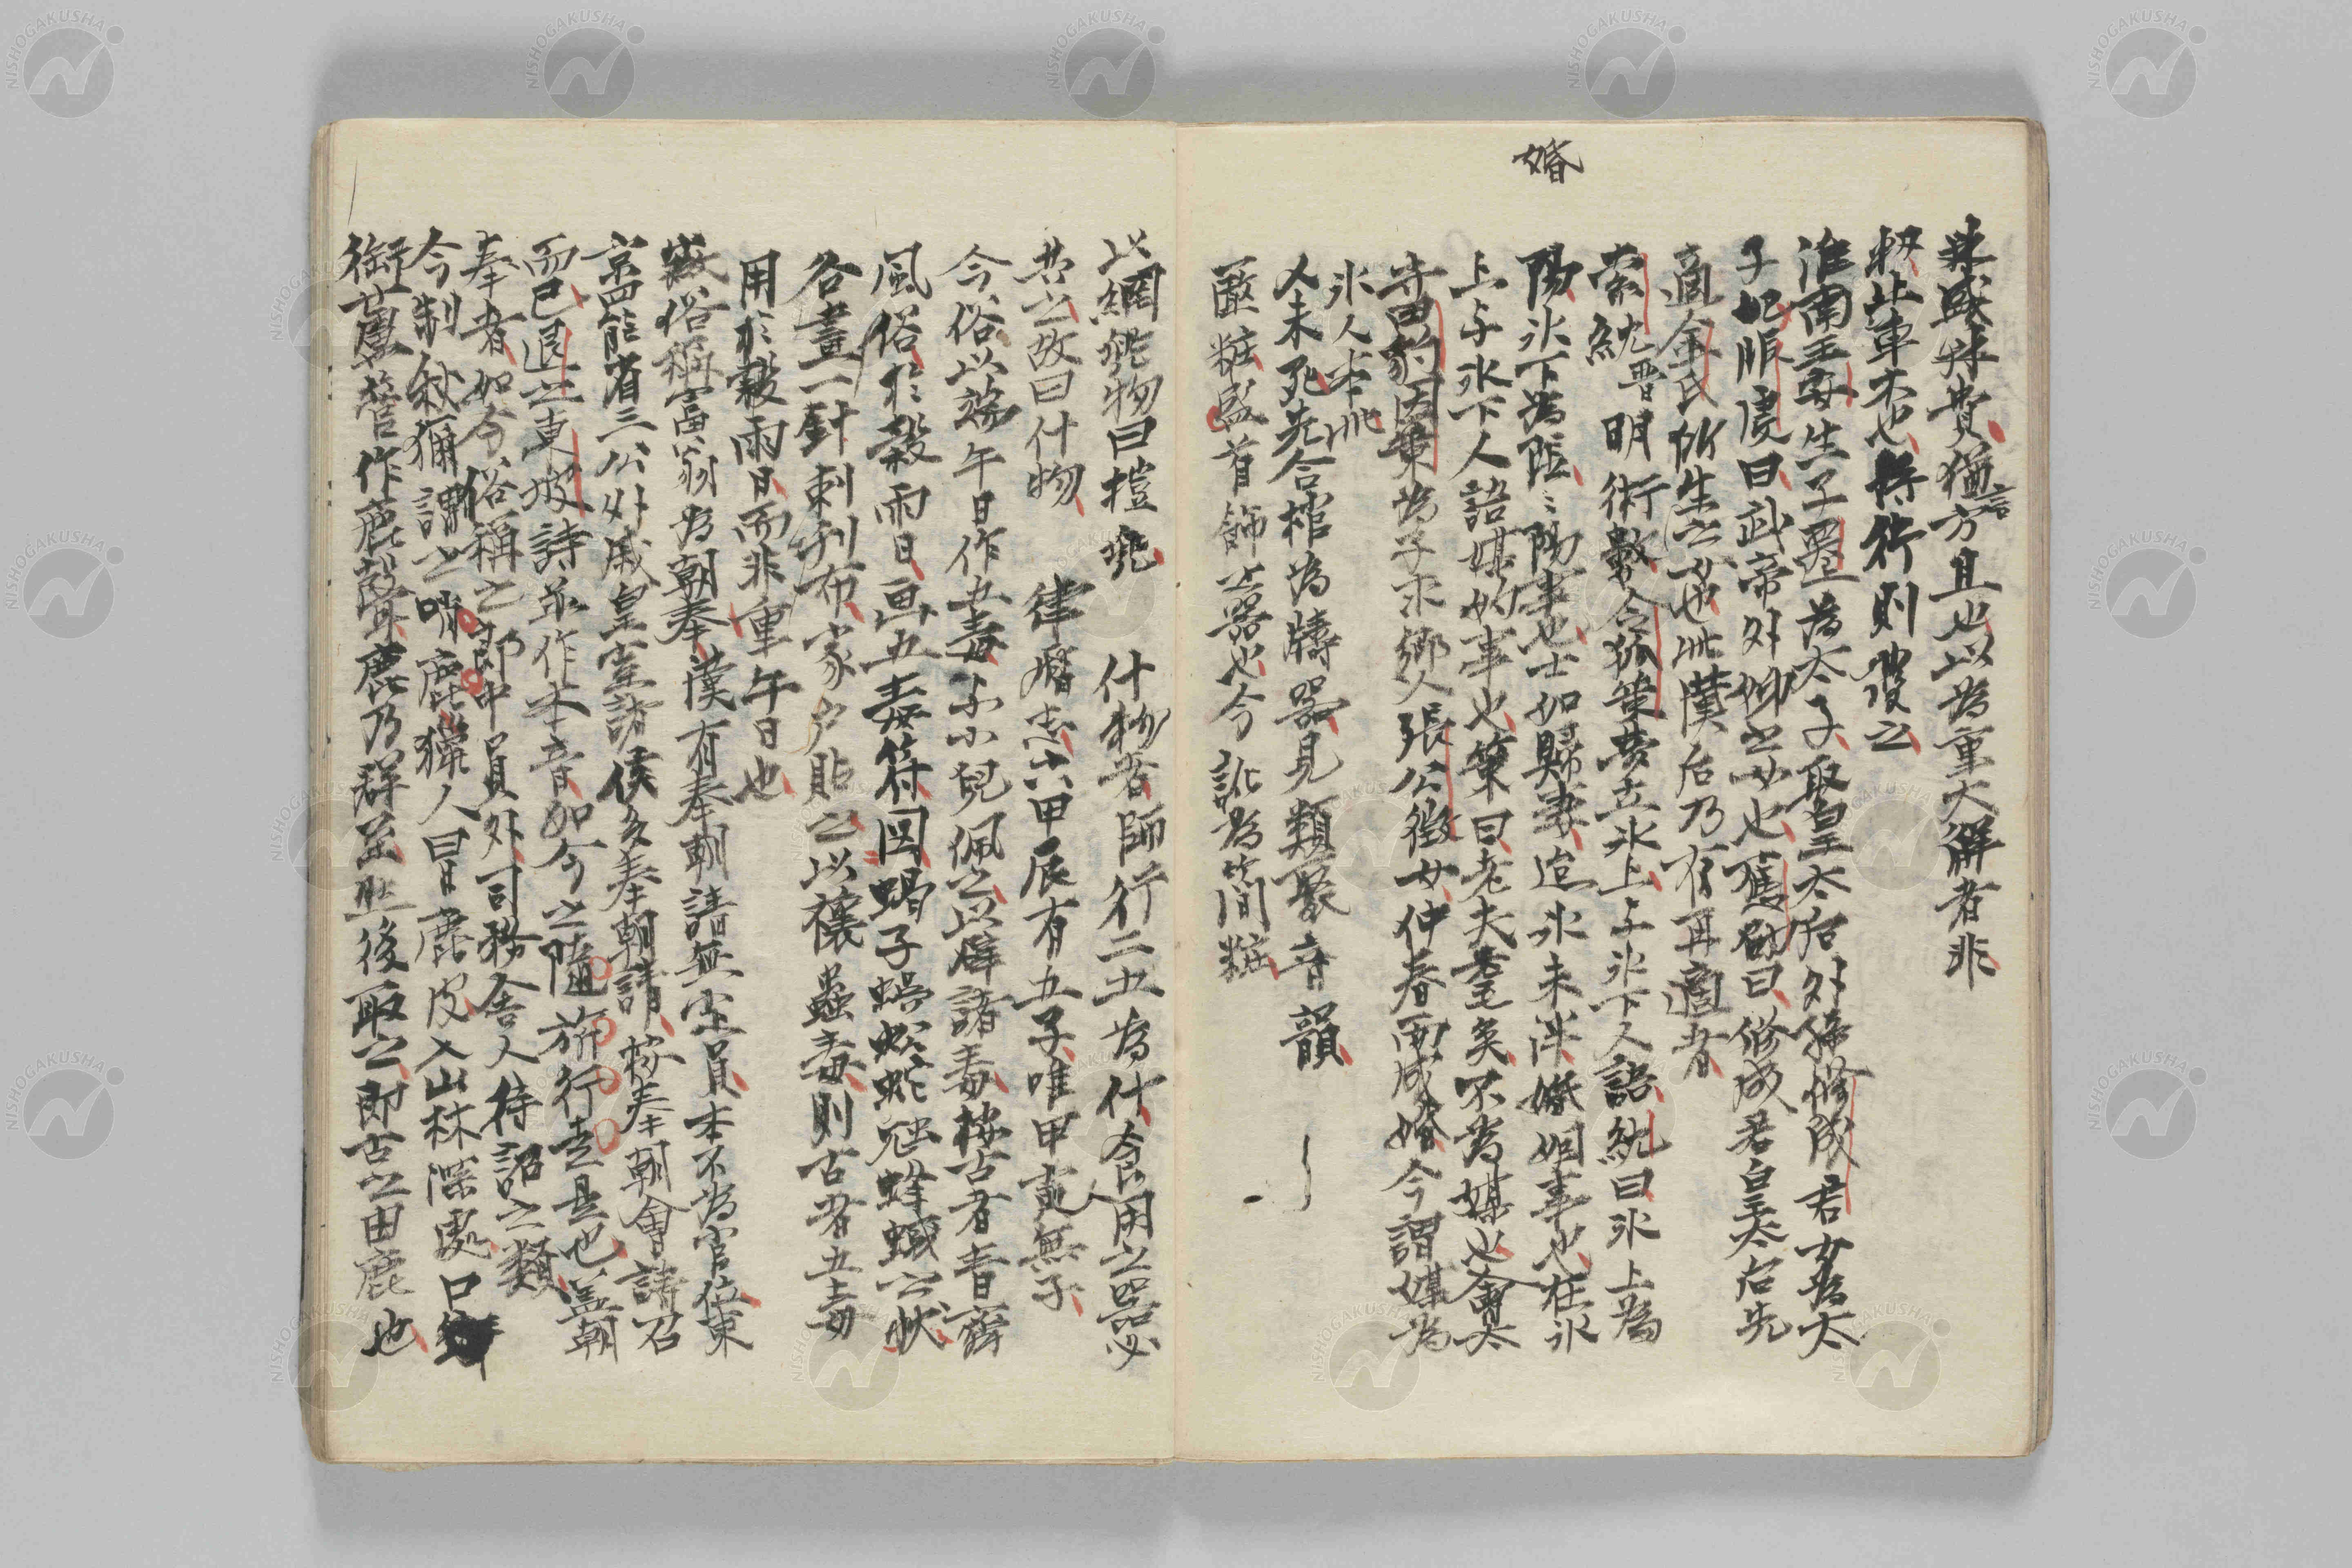 婚
殊盛殊貴猶言方且也以為重大解者非
軔止車木也将行則發之
淮南王安生子遷為太子取皇太后外孫修成君女為太
子妃服虔曰武帝外姉之女也應劭曰修成君皇太后先
適金氏所生之女也此漢后乃有再適者
索紞晋明術数令狐策夢立氷上与氷下人語紞曰氷上為
陽氷下為陰陰陽事也士如歸妻迨氷未泮婚姻事也在氷
上与氷下人語媒妁事也策曰老夫耄矣不為媒也會太
守田豹因策為子求郷人張公徴女仲春而成婚今謂媒為
氷人本此
人未死先合棺為牗器見類聚音韻
匳粧盛首飾之器也今訛為簡粧
以綱繞物曰揎繞 什物者師行二五為什食用之器必
共之故曰什物 律暦志六甲辰有五子唯甲寅無子
今俗以端午日作五毒与小児佩之以辟諸毒按古者青齊
風俗於穀雨日画五毒符図蝎子蜈蚣蛇虺蜂蜮之状
各畫一針刺刊布家戸貼之以禳蟲毒則古者五毒
用於穀雨日而非重午日也
俗稱富翁為朝奉漢有奉朝請無定員本不為官位東
京罷省三公外戚皇室諸侯多奉朝請者奉朝會請召
而已退之東坡詩並作本音如今之隨旅行走是也蓋朝
奉者如今俗稱之郎中員外司務舍人待詔之類
今制秋獮謂之哨鹿獵人冒鹿皮入山林深處口
銜蘆管作鹿聲鹿乃群至然後取之即古之由鹿也